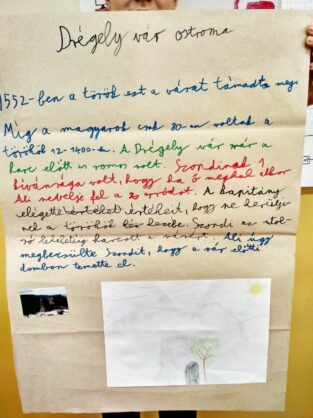 Drégely vár ostroma
1552-ben a török ezt a várat támadta meg.
Míg a magyarok csak 80-an voltak a
törökök 12-1400-an. A Drégely vár már a
harc előtt is romos volt. Szondinak 1
kívánsága volt, hogy ha ő meghal akkor
Ali nevelje fel a 2 apródot. A kapitány
elégette értékeit, hogy ne kerüljenek
nel a törökök kezebe. Szondi az utol-
só leheletéig harcolt a várért. Ali úgy
megbecsülte Szondit, hogy a vár előtti
dombon temette el.